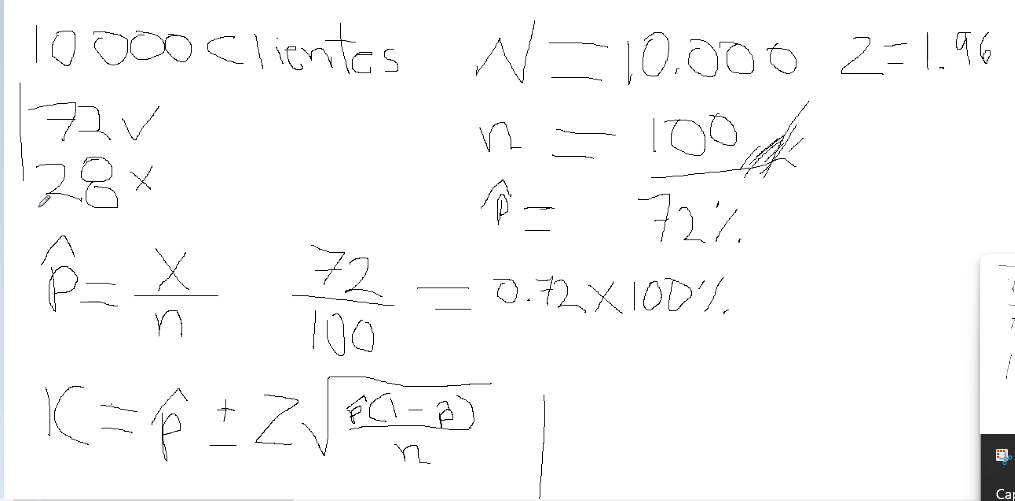 10000 Clientes N = 10.000 Z = 1.96
72 ✓ n = 100
28 x p̂ = 72%
p̂ = x/n 72/100 = 0.72 x 100%
IC = p̂ ± Z√(p̂(1-p̂)/n)
Cap